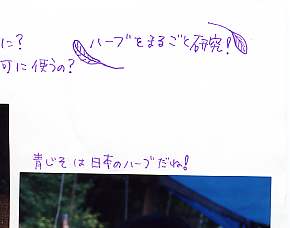 に?
ハーブをまるごと研究!
可に使うの?
青じそは日本のハーブだね!